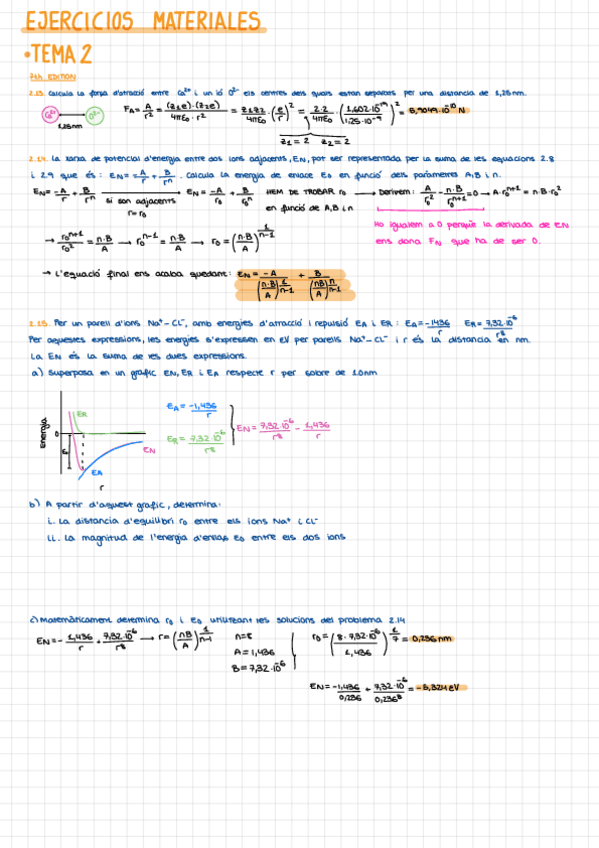 EJERCICIOS MATERIALES
•TEMA 2
7th EDITION
2.13. Calcula la força d'atracció entre Ca²⁺ i un ió O²⁻ els centres dels quals estan separats per una distància de 1,25 nm.
Ca²⁺ O²⁻ 1,25nm F_A = A/r² = (z₁e)·(z₂e)/4πε₀·r² = z₁z₂/4πε₀ · (e/r)² = 2·2/4πε₀ · (1,602·10⁻¹⁹/1,25·10⁻⁹)² = 5,9049·10⁻¹⁰ N
z₁=2 z₂=2
2.14. La xarxa de potencial d'energia entre dos ions adjacents, EN, pot ser representada per la suma de les equacions 2.8
i 2.9 que és: EN = -A/r + B/rⁿ. Calcula la energia de enllace E₀ en funció dels paràmetres A, B i n.
EN = -A/r + B/rⁿ si son adjacents r=r₀ → EN = -A/r₀ + B/r₀ⁿ HEM DE TROBAR r₀ en funció de A,B i n → Derivem: A/r₀² - n·B/r₀ⁿ⁺¹ = 0 → A·r₀ⁿ⁺¹ = n·B·r₀²
Ho igualem a 0 perquè la derivada de EN
ens dona FN que ha de ser 0.
→ r₀ⁿ⁺¹/r₀² = n·B/A → r₀ⁿ⁻¹ = n·B/A → r₀ = (n·B/A)^(1/n-1)
→ L'equació final ens acaba quedant: EN = -A/(n·B/A)^(1/n-1) + B/(nB/A)^(n/n-1)
2.15. Per un parell d'ions Na⁺-Cl⁻, amb energies d'atracció i repulsió EA i ER: EA = -1,436/r ER = 7,32·10⁻⁶/r⁸
Per aquestes expressions, les energies s'expressen en eV per parells Na⁺-Cl⁻ i r és la distància en nm.
La EN és la suma de les dues expressions.
a) Superposa en un gràfic EN, ER i EA respecte r per sobre de 1.0nm
Energia 0 ER EN EA r
EA = -1,436/r
ER = 7,32·10⁻⁶/r⁸
EN = 7,32·10⁻⁶/r⁸ - 1,436/r
b) A partir d'aquest gràfic, determina:
i. La distància d'equilibri r₀ entre els ions Na⁺ i Cl⁻
ii. La magnitud de l'energia d'enllaç E₀ entre els dos ions
c) Matemàticament determina r₀ i E₀ utilitzant les solucions del problema 2.14
EN = -1,436/r + 7,32·10⁻⁶/r⁸ → r = (nB/A)^(1/n-1) n=8 r₀ = (8·7,32·10⁻⁶/1,436)^(1/7) = 0,236 nm
A=1,436
B=7,32·10⁻⁶
EN = -1,436/0,236 + 7,32·10⁻⁶/0,236⁸ = -5,324 eV